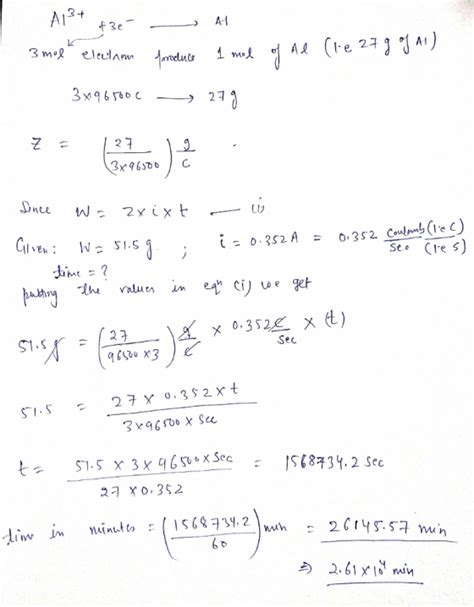 Al³⁺ +3e⁻ → Al
3 mol electron produce 1 mol of Al (i.e 27 g of Al)
3×96500C → 27g
Z = (27/3×96500) g/C
Since W = Z×i×t — (i)
Given: W = 51.5g ; i = 0.352A = 0.352 Coulomb/Sec (i.e C)/(i.e S)
time = ?
putting the values in eqn (i) we get
51.5g = (27/96500×3) g/C × 0.352 C/Sec × (t)
51.5 = 27 × 0.352 × t/3×96500 × Sec
t = 51.5 × 3 × 96500 × Sec/27 × 0.352 = 1568734.2 Sec
time in minutes = (1568734.2/60) min = 26145.57 min
⇒ 2.61×10⁴ min